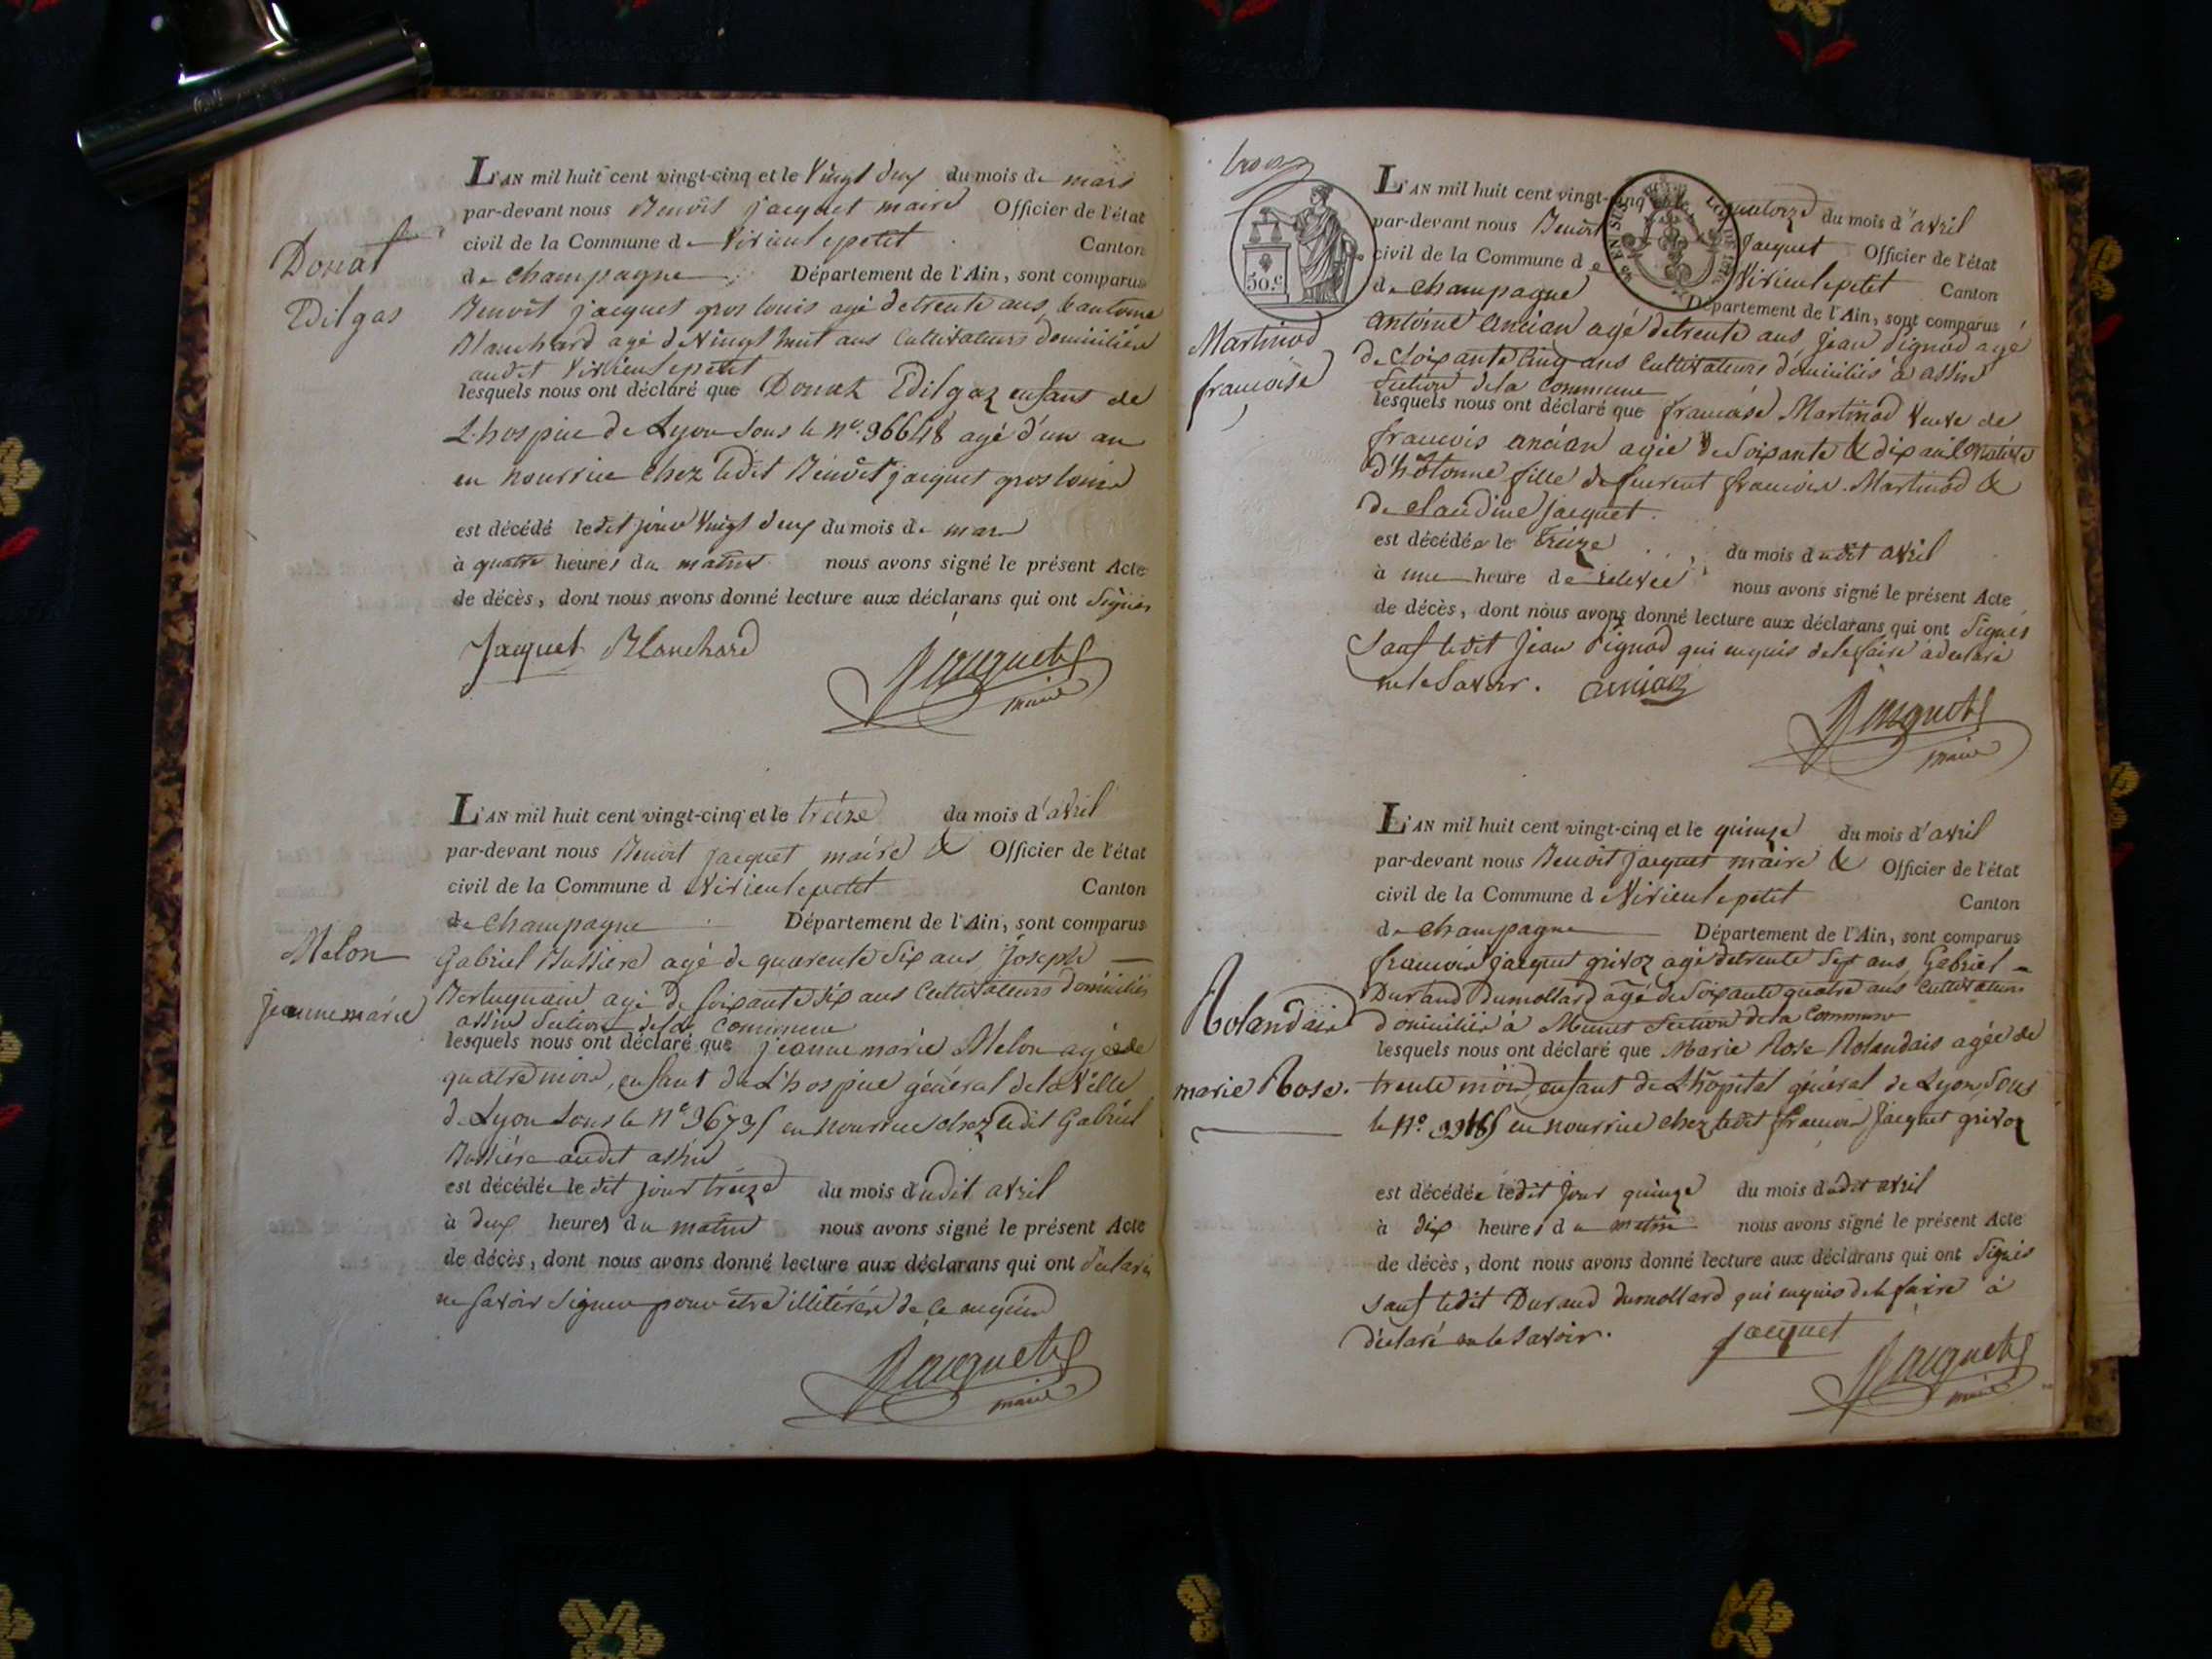 L'AN mil huit cent vingt-cinq et le Vingt deux du mois de mars
par-devant nous Benoit jacquet maire Officier de l'état
civil de la Commune de Virieulepetit Canton
de Champagne Département de l'Ain, sont comparus
Donat
Edilgas
Benoît jacquet gros louis agé de trente ans, & antoine
Blanchard agé de Vingt huit ans Cultivateurs domiciliés
audit Virieulepetit
lesquels nous ont déclaré que Donat Edilgaz enfant de
L'hospice de Lyon sous le n°. 36648 agé d'un an
en nourrice chez ledit Benoît jacquet gros louis
est décédé ledit jour Vingt deux du mois de mars
à quatre heures du matin nous avons signé le présent Acte
de décès, dont nous avons donné lecture aux déclarans qui ont Signés
Jacquet Blanchard
Jacquet
maire
L'AN mil huit cent vingt-cinq et le treize du mois d'avril
par-devant nous Benoit jacquet maire & Officier de l'état
civil de la Commune d Virieulepetit Canton
de Champagne Département de l'Ain, sont comparus
Melon
jeannemarie
Gabriel Bussiere agé de quarente Six ans, Joseph
agé de soixante dix ans Cultivateurs domiciliés
assin Section de la Commune
lesquels nous ont déclaré que jeanne marie Melon agée de
quatre mois, enfant de L'hospice général de la Ville
de Lyon sous le n° en nourrice chez ledit Gabriel
Bussiére audit assin
est décédée le dit jour treize du mois dudit avril
à deux heures du matin nous avons signé le présent Acte
de décès, dont nous avons donné lecture aux déclarans qui ont déclarés
ne savoir signer pour être illitérés de ce enquis
Jacquet
maire
50.c
EN SUS
LOI DE 1816
L'AN mil huit cent vingt-cinq et le quatorze du mois d'avril
par-devant nous Benoit Jacquet Officier de l'état
civil de la Commune de Virieulepetit Canton
de Champagne Département de l'Ain, sont comparus
Martinod
francoise
antoine ancian agé de trente ans Jean Pignod agé
de soixante cinq ans Cultivateurs domiciliés à assin
Section de la Commune
lesquels nous ont déclaré que francoise Martinod Veuve de
francois ancian agée de Soixante & dix ans native
d'hotonne fille de furent francois Martinod &
de claudine jacquet
est décédée le treize du mois dudit avril
à une heure de relevée nous avons signé le présent Acte
de décès, dont nous avons donné lecture aux déclarans qui ont Signés
Sauf ledit Jean Pignod qui enquis de le faire a déclaré
ne le Savoir. ancian
Jacquet
maire
L'AN mil huit cent vingt-cinq et le quinze du mois d'avril
par-devant nous Benoit jacquet maire & Officier de l'état
civil de la Commune d Virieulepetit Canton
de Champagne Département de l'Ain, sont comparus
Rolandais
marie Rose.
francois jacquet grivoz agé de trente Sept ans, Gabriel
Durand Dumollard agé de Soixante quatre ans Cultivateurs
domiciliés à Munet Section de la Commune
lesquels nous ont déclaré que Marie Rose Rolandais agée de
trente mois, enfant de L'hôpital général de Lyon, sous
le N°. en nourrice chez ledit francois Jacquet grivoz
est décédée ledit Jour quinze du mois dudit avril
à dix heures du matin nous avons signé le présent Acte
de décès, dont nous avons donné lecture aux déclarans qui ont Signés
Sauf ledit Durand dumollard qui enquis de le faire à
déclaré ne le Savoir. jacquet
Jacquet
maire